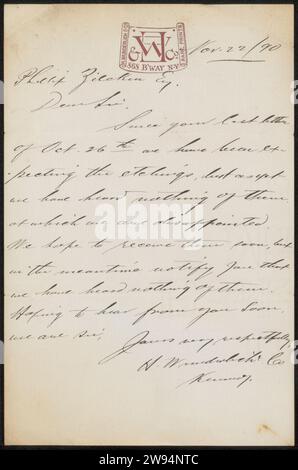 H. WUNDERLICH & CO.
& W Co
868 B'WAY N-Y
Nov. 22/90
Philip Zilcken Eq.
Dear Sir.
Since your last letter
of Oct. 26th we have been ex-
pecting the etchings, but as yet
we have heard nothing of them
at which we are disappointed
We hope to receive them soon, but
in the meantime notify you that
we have heard nothing of them.
Hoping to hear from you soon.
we are sir,
Yours very respectfully,
H Wunderlich & Co
Kennedy.
alamy
Image ID: 2W94NTC
www.alamy.com